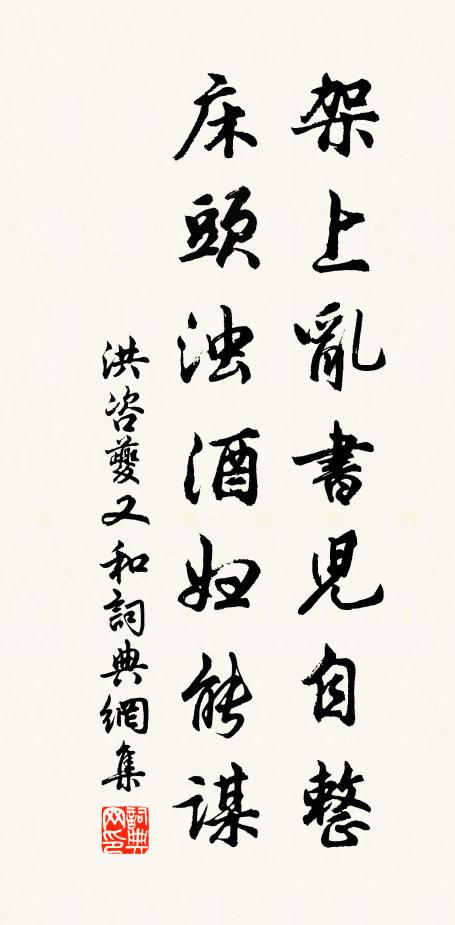 架上亂書児自整
床頭浊酒妇能謀
洪咨夔又和詞典網集
詞典网印